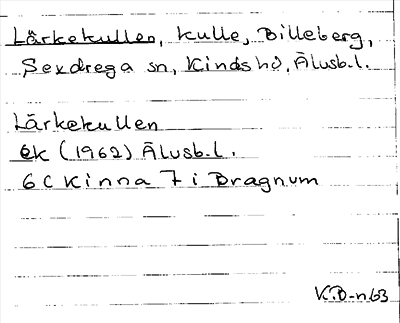 Lärkekullen, kulle, Billeberg,
Sexdrega sn, Kinds hd, Älvsb.l.
Lärkekullen
ek (1962) Älvsb.l.
6C Kinna 7i Dragnum
K.D-n 63